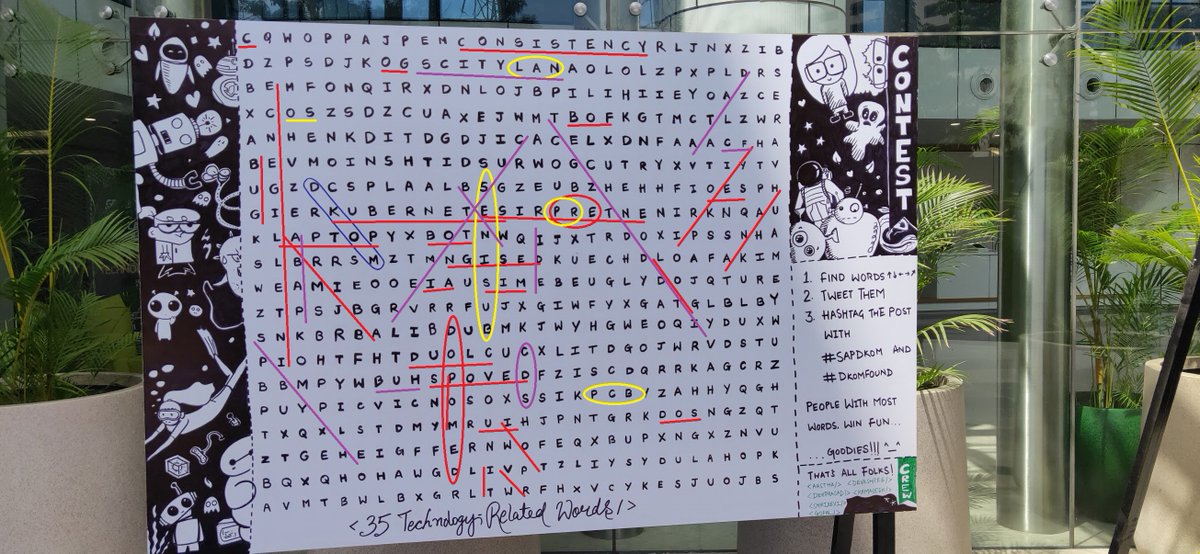 C Q W O P P A J P E M C O N S I S T E N C Y R L J N X Z I B
D Z P S D J K O G S C I T Y L A N A O L O L Z P X P L D R S
B E M F O N Q I R X D N L O J B P I L I H I I E Y O A Z C E
X C O S Z S D Z C U A X E J W M T B O F K G T M C T L Z W R
A N H E N K D I T D G D J I C A C E L X D N F A A A C F H A
B E V M O I N S H T I D S U R W O G C U T R Y X V T I F T V
U G Z D C S P L A A L B S G Z E U B Z H E H H F I O E S P H
G I E R K U B E R N E T E S I R P R E T N E N I R K N Q A U
K L A P T O P Y X B O T N W Q I J X T R D O X I P S S N H A
S L B R R S M Z T M N G I S E D K U E C H D L O A F A K I M
W E A M I E O O E I A U S I M E B E U G L Y D B Q J T U R E
Z T P S J B G R V R R F U J X G I W F Y X G A T G L B L B Y
S N K B R B A L I B D U B M K J W Y H G W E O Q I Y D U X W
P I O H T F H T D U O L C U C X L I T D G O J W R V D S T U
B B M P Y W B U H S P O V E D F Z I S C D Q R R K A G C R Z
P U Y P I C V I C N O S O X S S I K P C B Y Z A H H Y Q G H
T X Q X L S T D M Y M R U I H J P N T G R K D O S N G Z Q T
Z T G E H E I G F F E R N W O F E Q X B U P X N G X Z N V U
B Q X Q H O H A W G D L I V P T Z L I Y S Y D U L A H O P K
A V M T B W L B X G R L T W R F H X V C Y K E S J U O J B S
<35 Technology Related Words/>
CONTEST
1. FIND WORDS ↑↓←→↗
2. TWEET THEM
3. HASHTAG THE POST
WITH
#SAPDKOM AND
#DKOMFOUND
PEOPLE WITH MOST
WORDS. WIN FUN...
...GOODIES!!! ^_^
THATS ALL FOLKS!
CREW